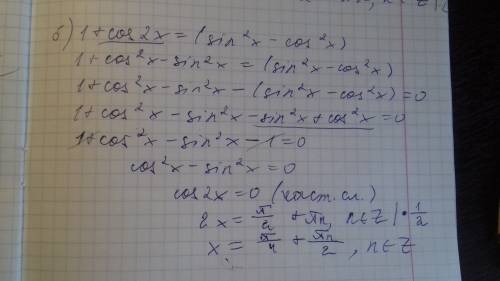 б) 1+cos2x = (sin²x - cos²x)
1+cos²x - sin²x = (sin²x - cos²x)
1+cos²x - sin²x - (sin²x - cos²x) = 0
1+cos²x - sin²x - sin²x + cos²x = 0
1+cos²x - sin²x - 1 = 0
cos²x - sin²x = 0
cos2x = 0 (част. сл.)
2x = π/2 + πn, n∈Z | · 1/2
x = π/4 + πn/2, n∈Z